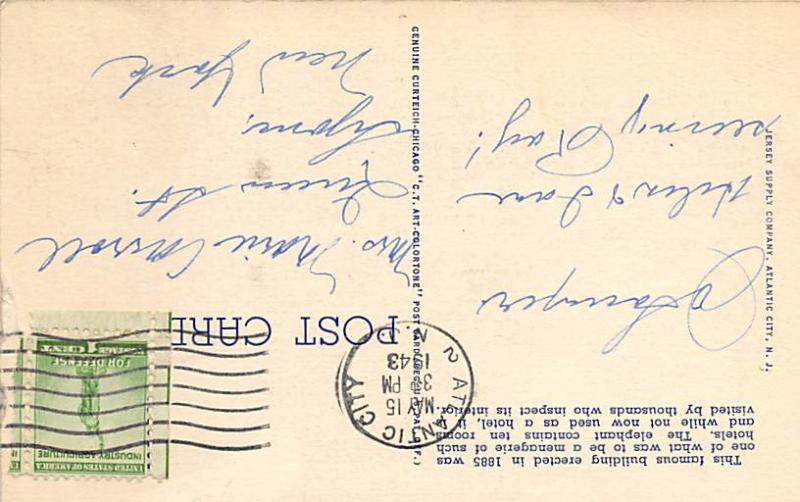 This famous building erected in 1885 was
one of what was to be a menagerie of such
hotels. The elephant contains ten rooms
and while not now used as a hotel, it is
visited by thousands who inspect its interior.
POST CARD
ATLANTIC CITY
2
MAY 15
3 PM
1943
N.
UNITED STATES OF AMERICA
INDUSTRY AGRICULTURE
FOR DEFENSE
1 CENT
POSTAGE
Helen & Jane
Ray!
Mrs. Marie Carroll
Queen St.
Lyons,
New York
GENUINE CURTEICH-CHICAGO "C.T. ART-COLORTONE" POST CARD (REG. U.S. PAT. OFF.)
JERSEY SUPPLY COMPANY, ATLANTIC CITY, N. J.